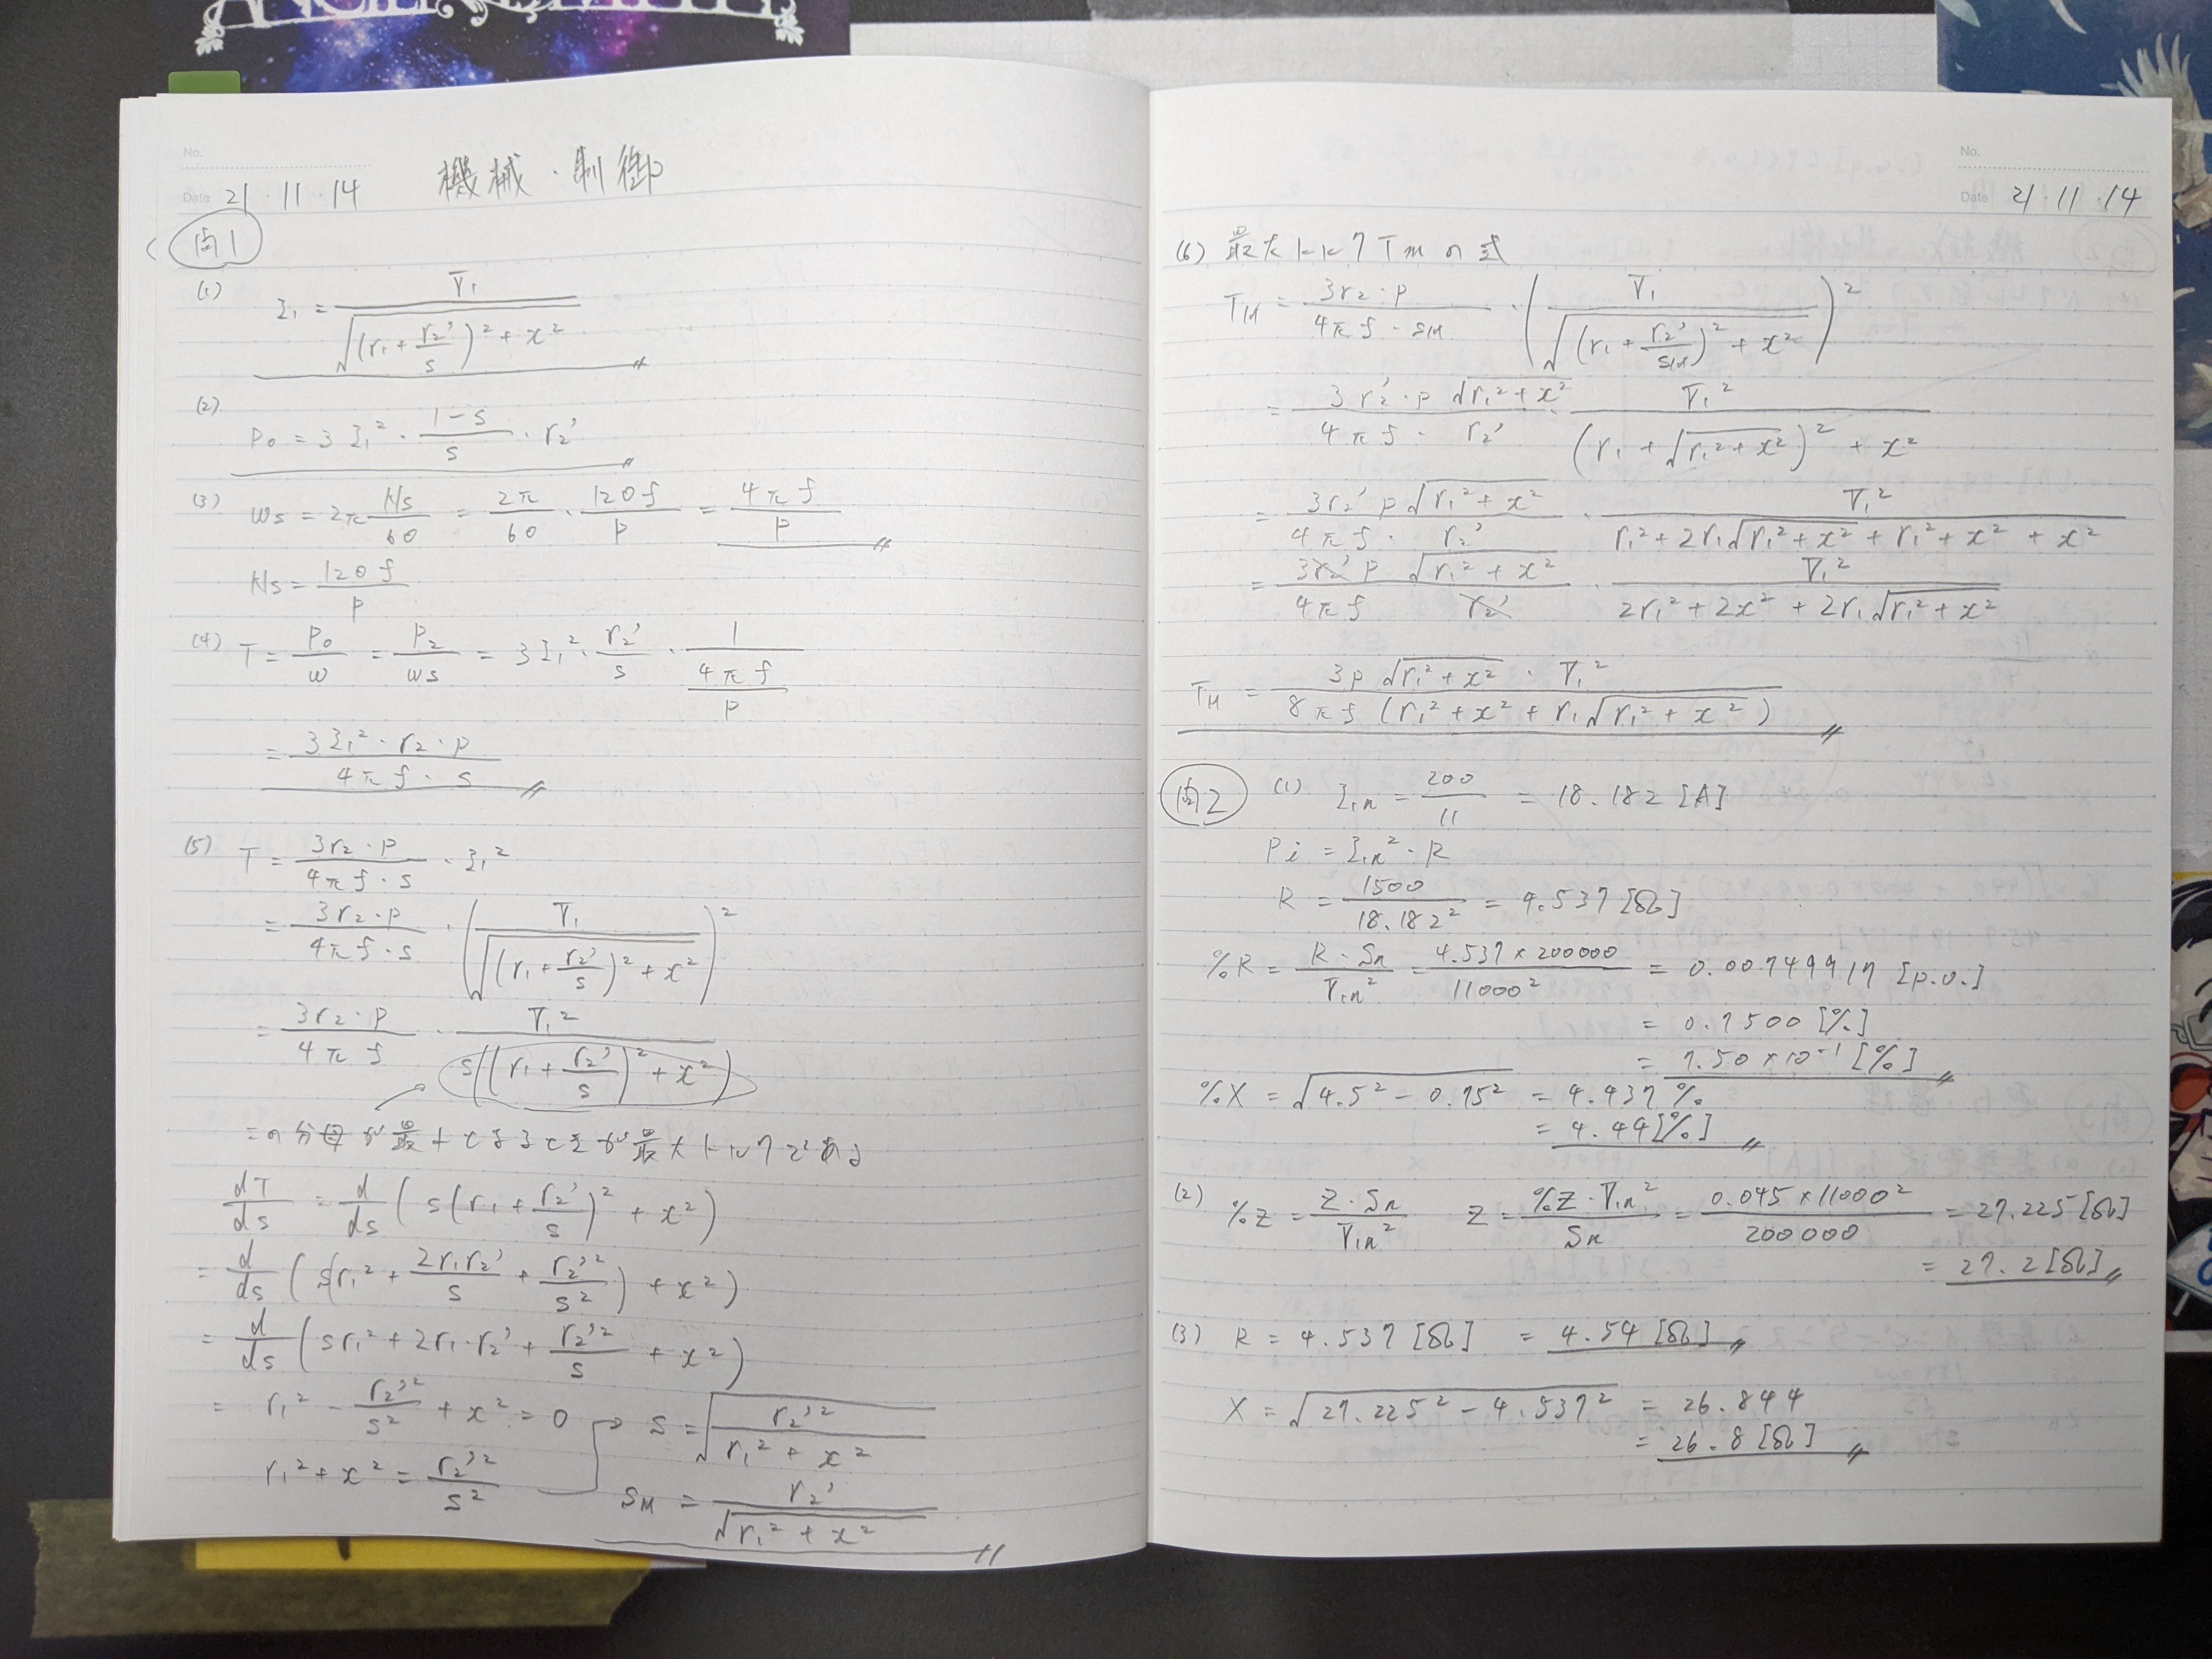 No.
Date 21・11・14 機械・制御
問1
(1) I₁ = V₁ / √((r₁ + r₂'/s)² + x²)
(2) P₀ = 3 I₁² ・ (1-s)/s ・ r₂'
(3) ωs = 2π Ns/60 = 2π/60 ・ 120f/P = 4πf/P
Ns = 120f/P
(4) T = P₀/ω = P₂/ωs = 3 I₁² ・ r₂'/s ・ 1/(4πf/P)
= 3I₁²・r₂・P / 4πf・s
(5) T = 3r₂・P / 4πf・s ・ I₁²
= 3r₂・P / 4πf・s ・ (V₁ / √((r₁ + r₂'/s)² + x²))²
= 3r₂・P / 4πf ・ V₁² / s((r₁ + r₂'/s)² + x²)
この分母が最小となるとき が最大トルクである
dT/ds = d/ds (s(r₁ + r₂'/s)² + x²)
= d/ds (s(r₁² + 2r₁r₂'/s + r₂'²/s²) + x²)
= d/ds (sr₁² + 2r₁・r₂' + r₂'²/s + x²)
= r₁² - r₂'²/s² + x² = 0 → s = √(r₂'² / r₁² + x²)
r₁² + x² = r₂'²/s²
sM = r₂' / √(r₁² + x²)
No.
Date 21・11・14
(6) 最大トルク Tm の式
TM = 3r₂・P / 4πf・sM ・ (V₁ / √((r₁ + r₂'/sM)² + x²))²
= 3r₂'・P √(r₁² + x²) / 4πf・r₂' ・ V₁² / (r₁ + √(r₁² + x²))² + x²
= 3r₂' P √(r₁² + x²) / 4πf・r₂' ・ V₁² / r₁² + 2r₁√(r₁² + x²) + r₁² + x² + x²
= 3r₂' P √(r₁² + x²) / 4πf r₂' ・ V₁² / 2r₁² + 2x² + 2r₁√(r₁² + x²)
TM = 3P √(r₁² + x²)・V₁² / 8πf (r₁² + x² + r₁√(r₁² + x²))
問2 (1) I₁n = 200/11 = 18.182 [A]
Pi = I₁n²・R
R = 1500/18.182² = 4.537 [Ω]
%R = R・Sn/V₁n² = 4.537×200000/11000² = 0.00749917 [p.u.]
= 0.7500 [%]
= 7.50×10⁻¹ [%]
%X = √(4.5² - 0.75²) = 4.437 %
= 4.44 [%]
(2) %Z = Z・Sn/V₁n² Z = %Z・V₁n²/Sn = 0.045×11000²/200000 = 27.225 [Ω]
= 27.2 [Ω]
(3) R = 4.537 [Ω] = 4.54 [Ω]
X = √(27.225² - 4.537²) = 26.844
= 26.8 [Ω]